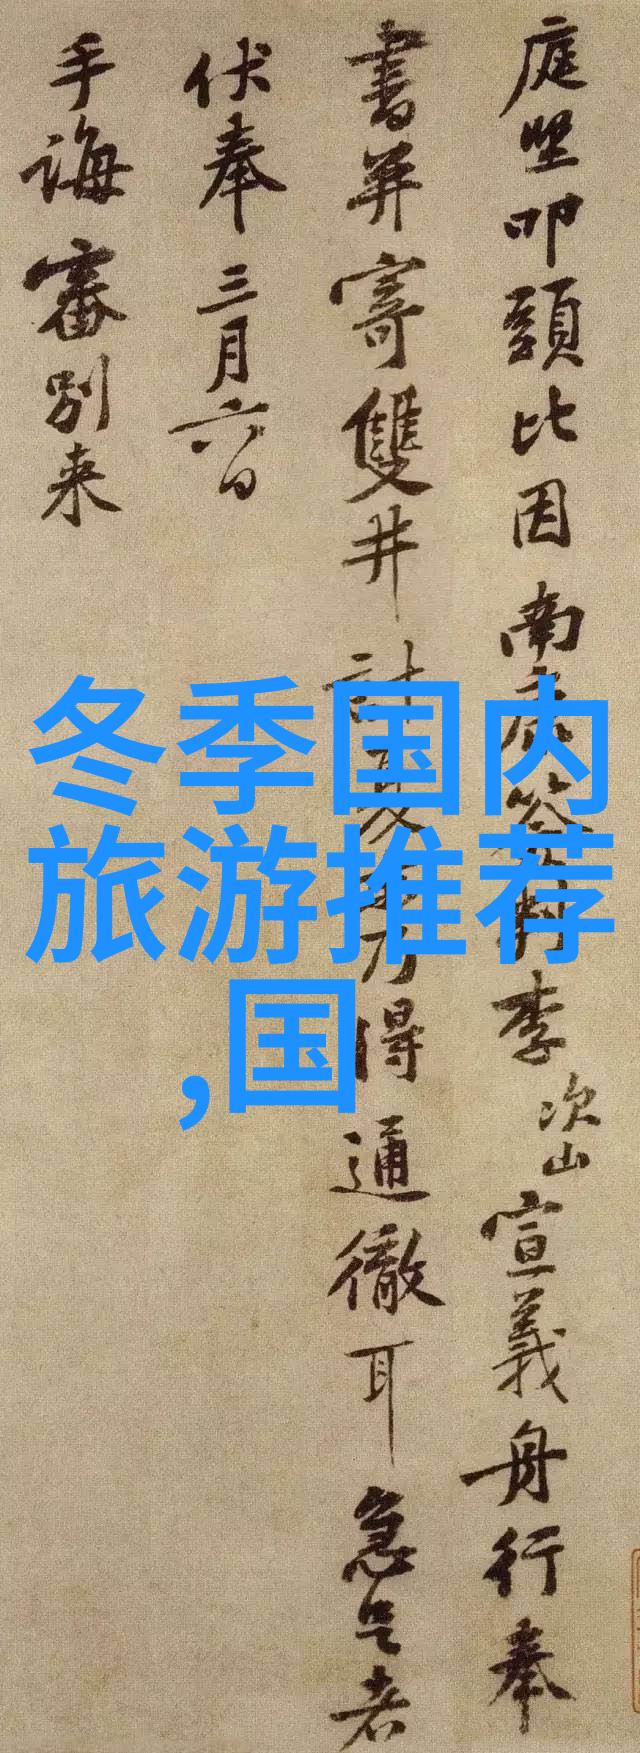 庭堅叩頭比因南康簽判李次山宣義舟行奉
書并寄雙井計夏乃得通徹耳急足者
伏奉三月六日
手誨審別来
冬季国内
旅游推荐
,国